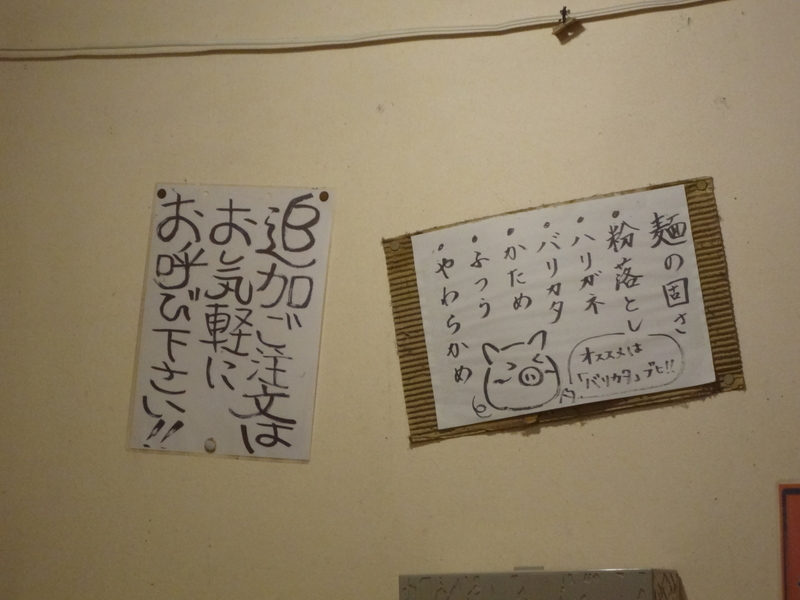 追加ご注文は
お気軽に
お呼び下さい!!
麺の固さ
・粉落とし
・ハリガネ
・バリカタ
・かため
・ふつう
・やわらかめ
オススメは
「バリカタ」ブヒ!!